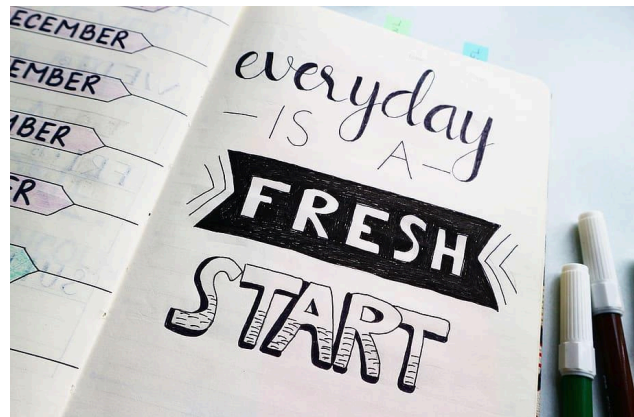 ECEMBER
EMBER
MBER
ER
everyday
– IS A –
FRESH
START